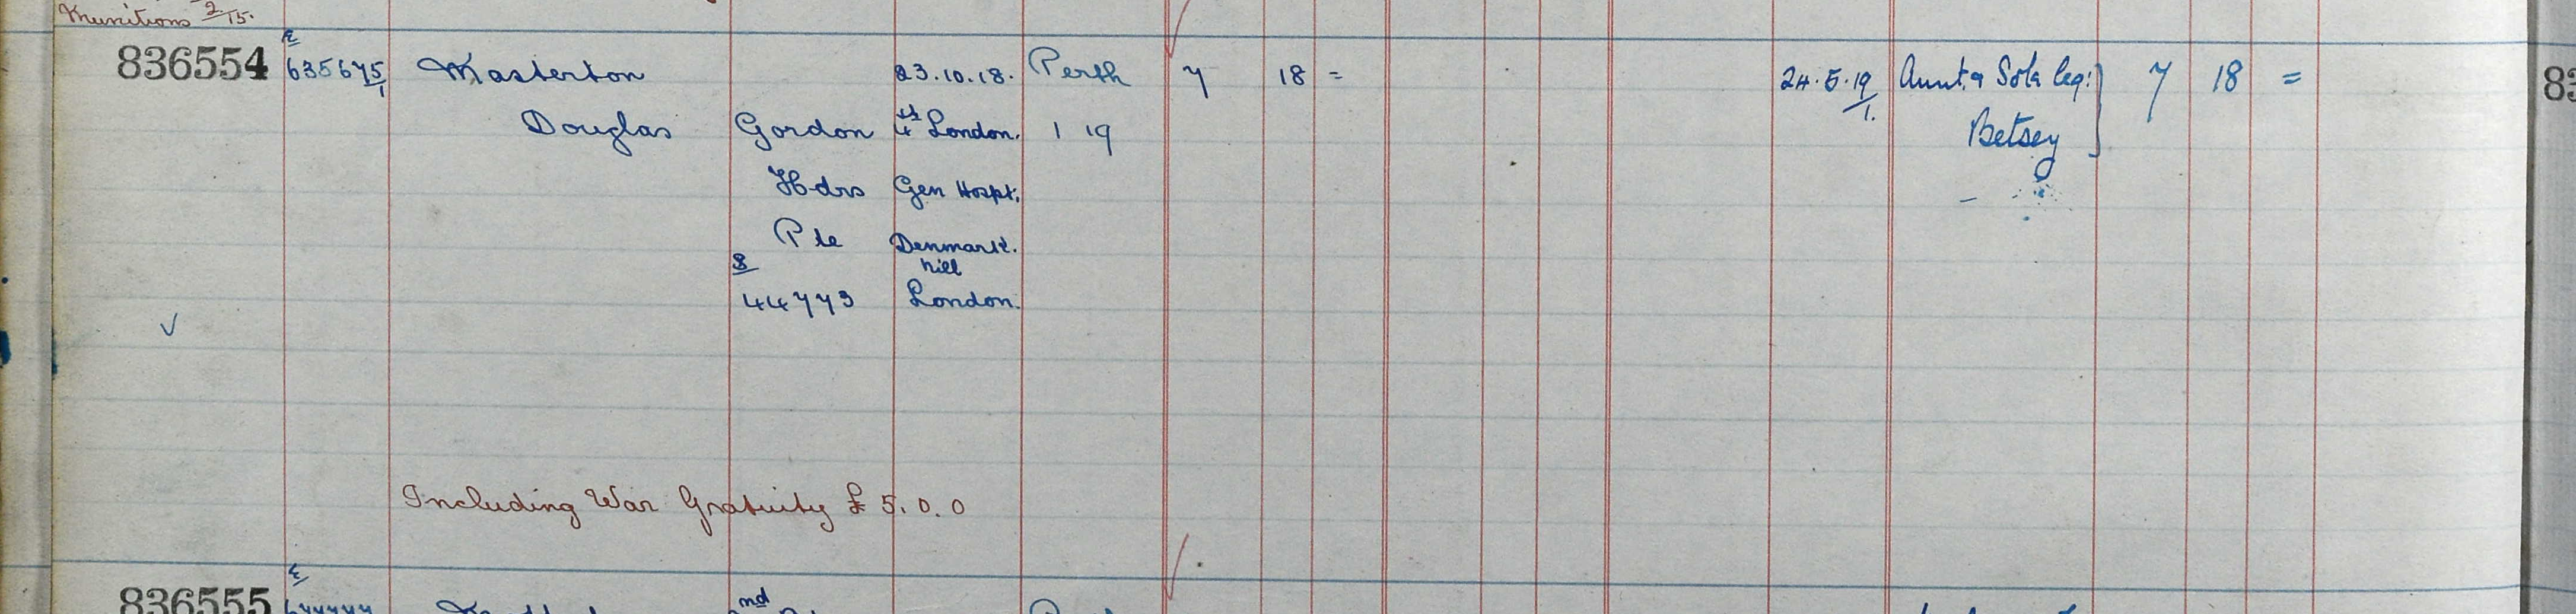 Munitions 2/15.
836554 E 635675/1 Masterton 23.10.18. Perth 7 18 = 24.5.19/1. Aunt & Sole leg: 7 18 =
Douglas Gordon 4th London. 1 19 Betsey
Hdrs Gen Hospt.
Pte Denmark.
S hill
44773 London.
Including War Gratuity £ 5. 0. 0
836555 E nd